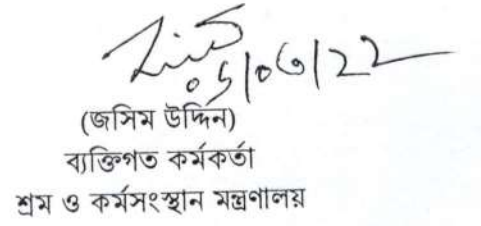 (জসিম উদ্দিন)
ব্যক্তিগত কর্মকর্তা
শ্রম ও কর্মসংস্থান মন্ত্রণালয়